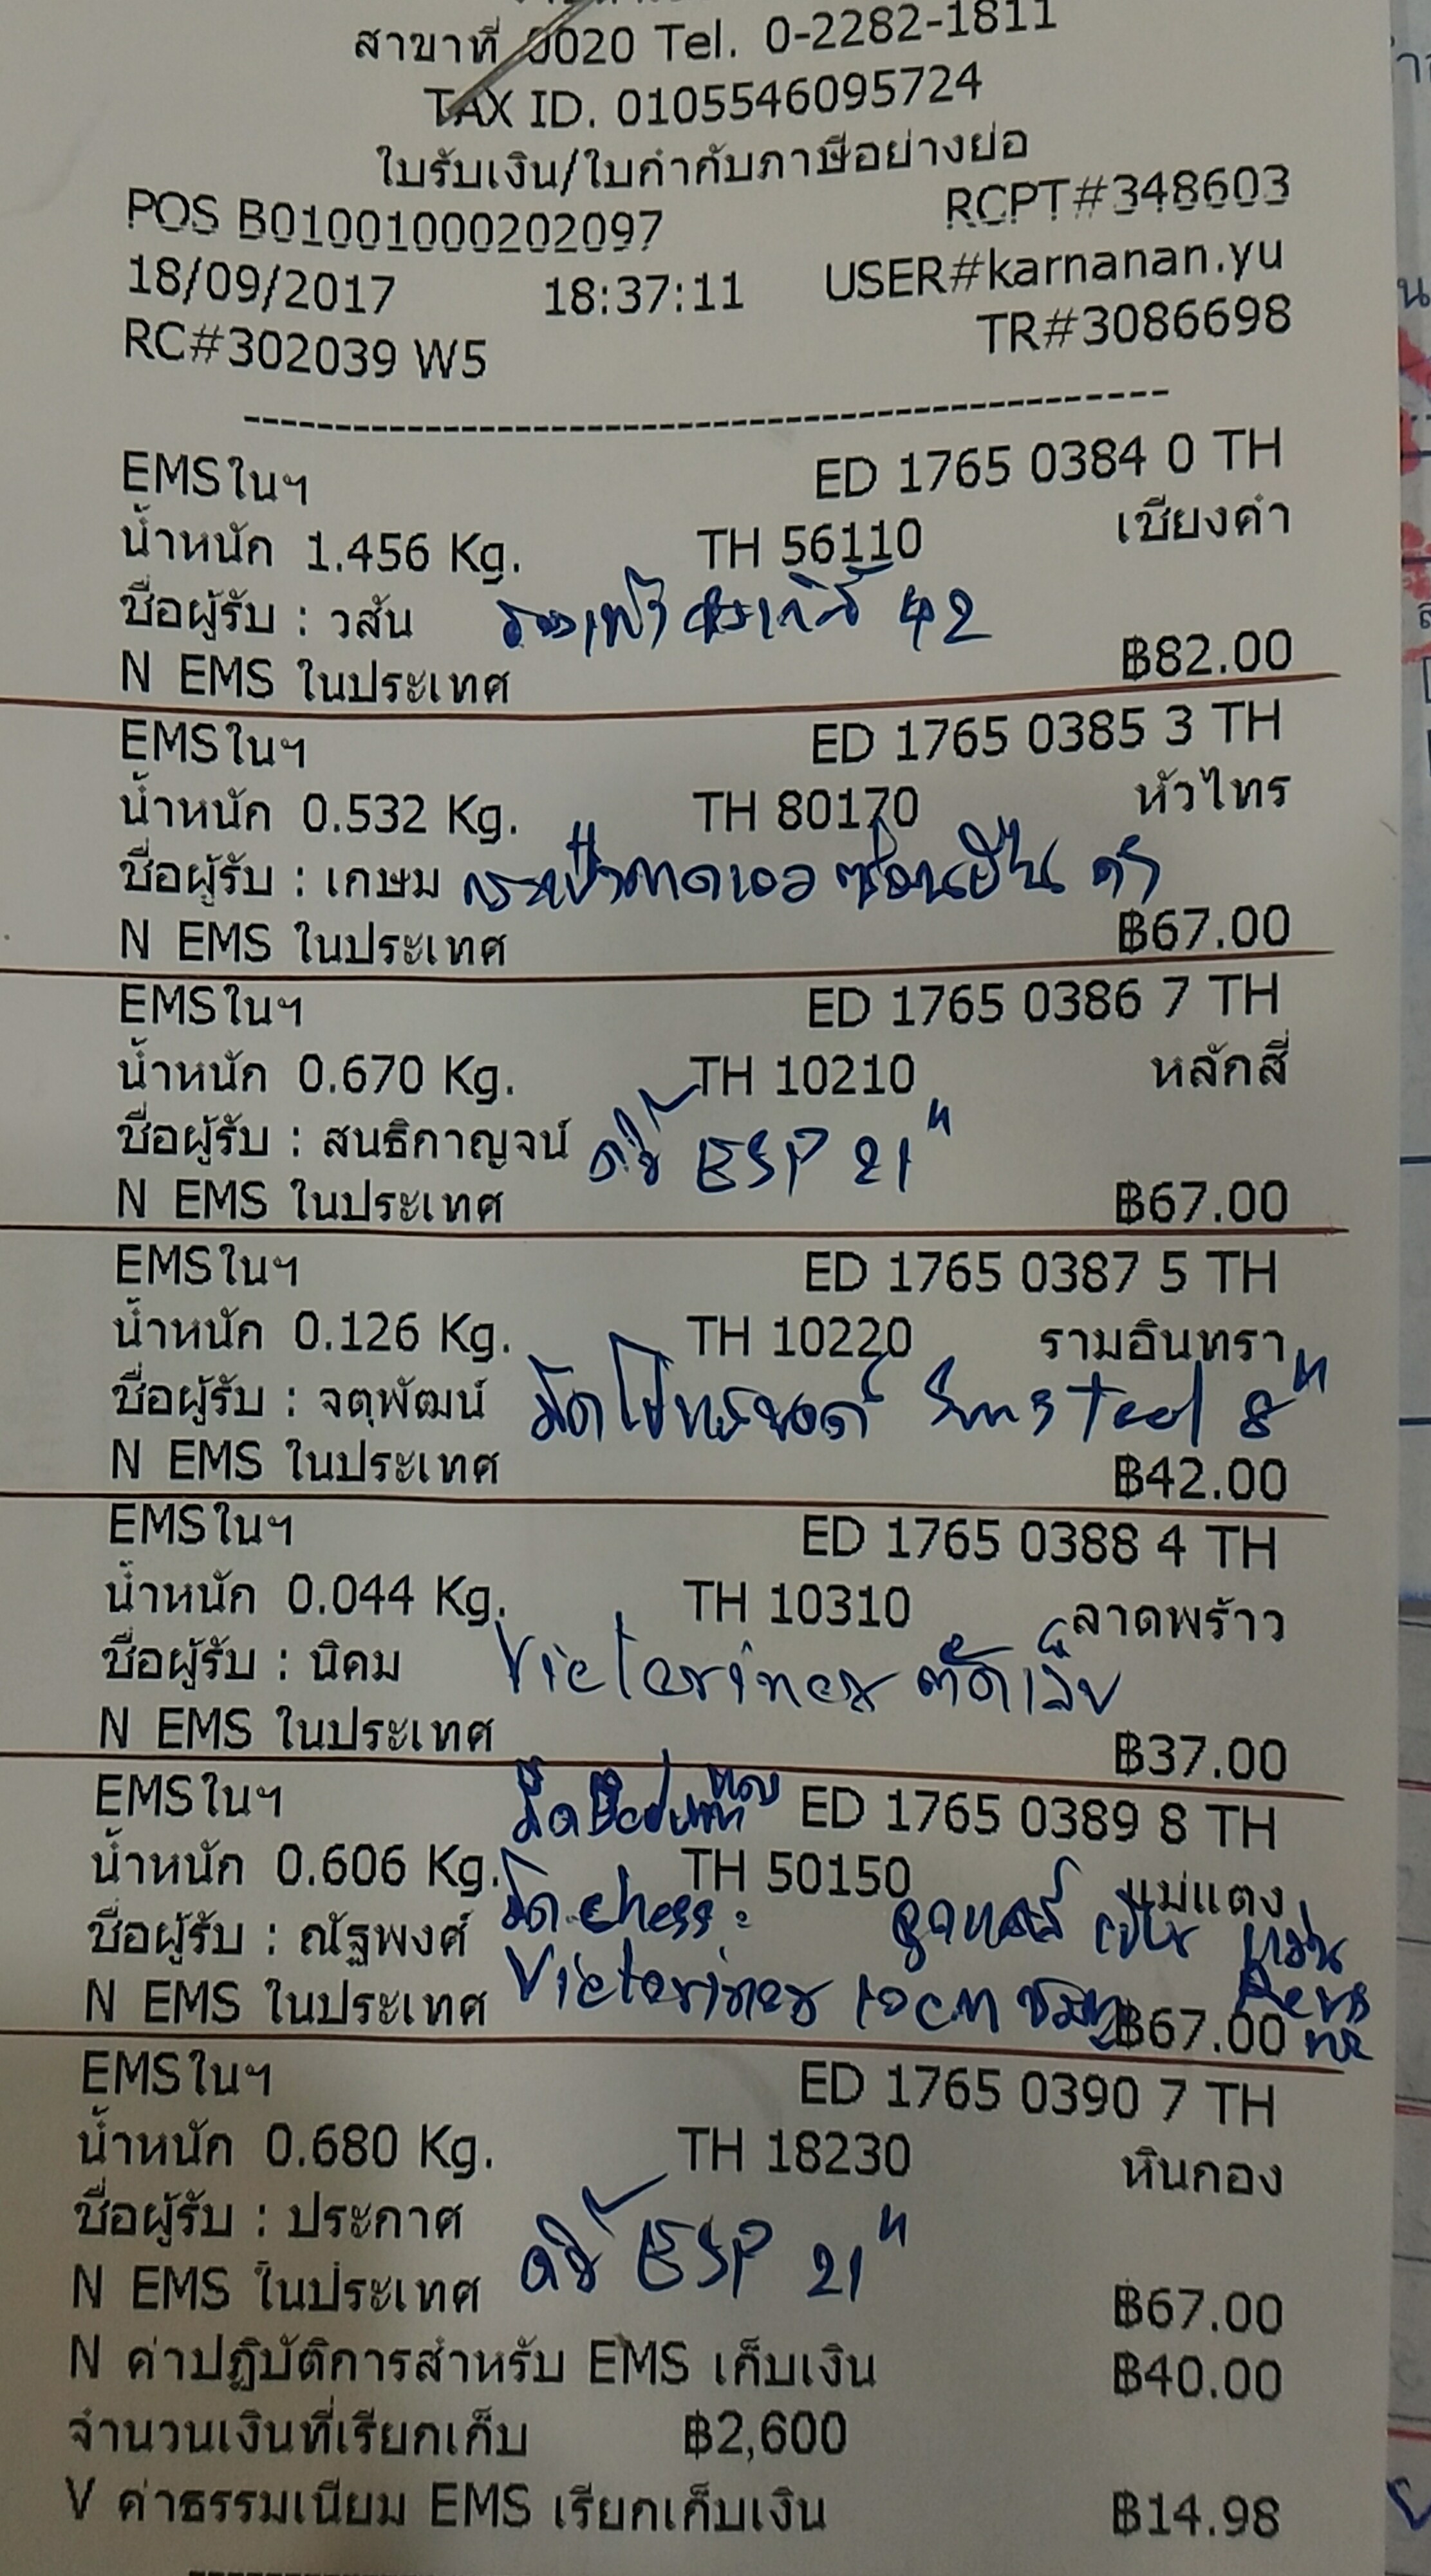 สาขาที่ 0020 Tel. 0-2282-1811
TAX ID. 0105546095724
ใบรับเงิน/ใบกำกับภาษีอย่างย่อ
POS B01001000202097 RCPT#348603
18/09/2017 18:37:11 USER#karnanan.yu
RC#302039 W5 TR#3086698
EMSในฯ ED 1765 0384 0 TH
น้ำหนัก 1.456 Kg. TH 56110 เชียงคำ
ชื่อผู้รับ : วสัน 42
N EMS ในประเทศ ฿82.00
EMSในฯ ED 1765 0385 3 TH
น้ำหนัก 0.532 Kg. TH 80170 หัวไทร
ชื่อผู้รับ : เกษม กระเป๋าคาดเอว ซ่อนปืน ดำ
N EMS ในประเทศ ฿67.00
EMSในฯ ED 1765 0386 7 TH
น้ำหนัก 0.670 Kg. TH 10210 หลักสี่
ชื่อผู้รับ : สนธิกาญจน์ ดิ้ว ESP 21"
N EMS ในประเทศ ฿67.00
EMSในฯ ED 1765 0387 5 TH
น้ำหนัก 0.126 Kg. TH 10220 รามอินทรา
ชื่อผู้รับ : จตุพัฒน์ 8"
N EMS ในประเทศ ฿42.00
EMSในฯ ED 1765 0388 4 TH
น้ำหนัก 0.044 Kg. TH 10310 ลาดพร้าว
ชื่อผู้รับ : นิคม Victorinox ตัดเล็บ
N EMS ในประเทศ ฿37.00
EMSในฯ ED 1765 0389 8 TH
น้ำหนัก 0.606 Kg. TH 50150 แม่แตง
ชื่อผู้รับ : ณัฐพงศ์ มีด chess
N EMS ในประเทศ Victorinox 10cm ฿67.00
EMSในฯ ED 1765 0390 7 TH
น้ำหนัก 0.680 Kg. TH 18230 หินกอง
ชื่อผู้รับ : ประกาศ ดิ้ว ESP 21"
N EMS ในประเทศ ฿67.00
N ค่าปฏิบัติการสำหรับ EMS เก็บเงิน ฿40.00
จำนวนเงินที่เรียกเก็บ ฿2,600
V ค่าธรรมเนียม EMS เรียกเก็บเงิน ฿14.98